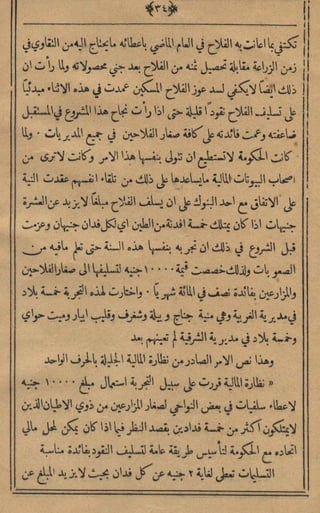 ﴿٣٤﴾
تكتفي بما اعانت به الفلاح في العام الماضي باعطائه مايحتاج اليه من التقاوي في
زمن الزراعة مقابلة تحصيل ثمنه من الفلاح بعد جني محصولاته ولما رأت ان
ذلك ايضًا لا يكفي لسد عوز الفلاح المسكين عمدت في هذه الاثناء مبدئيًا
على تسليف الفلاح نقودًا قليلة حتى اذا رأت نجاح هذا المشروع في المستقبل
ضاعفته وعمت فائدته على كافة صغار الفلاحين في جميع المديريات . ولما
كانت الحكومة لا تستطيع ان تتولى بنفسها هذا الامر وكانت لا ترى من
اصحاب البيوتات المالية مايساعدها على ذلك من تلقاء انفسهم عقدت النية
على الاتفاق مع احد البنوك على ان يسلف الفلاح مبلغًا لا يزيد عن العشرة
جنيهات اذا كان يمتلك خمسة افدنة من الطين اي لكل فدان جنيهان وعزمت
قبل الشروع في ذلك ان تجربه بنفسها هذه السنة حتى تعلم مافيه من
الصعوبات ولذلك خصصت قيمة ١٠٠٠٠ جنيه لتسليفها الى صغار الفلاحين
والمزارعين بفائدة نصف في المائة شهريًا . واختارت لهذه التجربة خمسة بلاد
في مديرية الغربية وهي منية جناج و بيلة وشغرف وقليب ابيار وميت حواي
وخمسة بلاد في مديرية الشرقية لم تعينهم بعد
وهذا نص الامر الصادر من نظارة المالية الجليلة بالحرف الواحد
« نظارة المالية قررت على سبيل التجربة استعمال مبلغ ١٠٠٠٠ جنيه
لاعطاء سلفيات في بعض النواحي لصغار المزارعين من ذوي الاطيان الذين
لا يمتلكون أكثر من خمسة فدادين بقصد النظر فيما اذا كان يمكن لمحل مالي
اتحاده مع الحكومة لتأسيس طريقة عامة لتسليف النقود بفائدة مناسبة
التسليمات تعطى لغاية ٢ جنيه عن كل فدان بحيث لا يزيد المبلغ عن